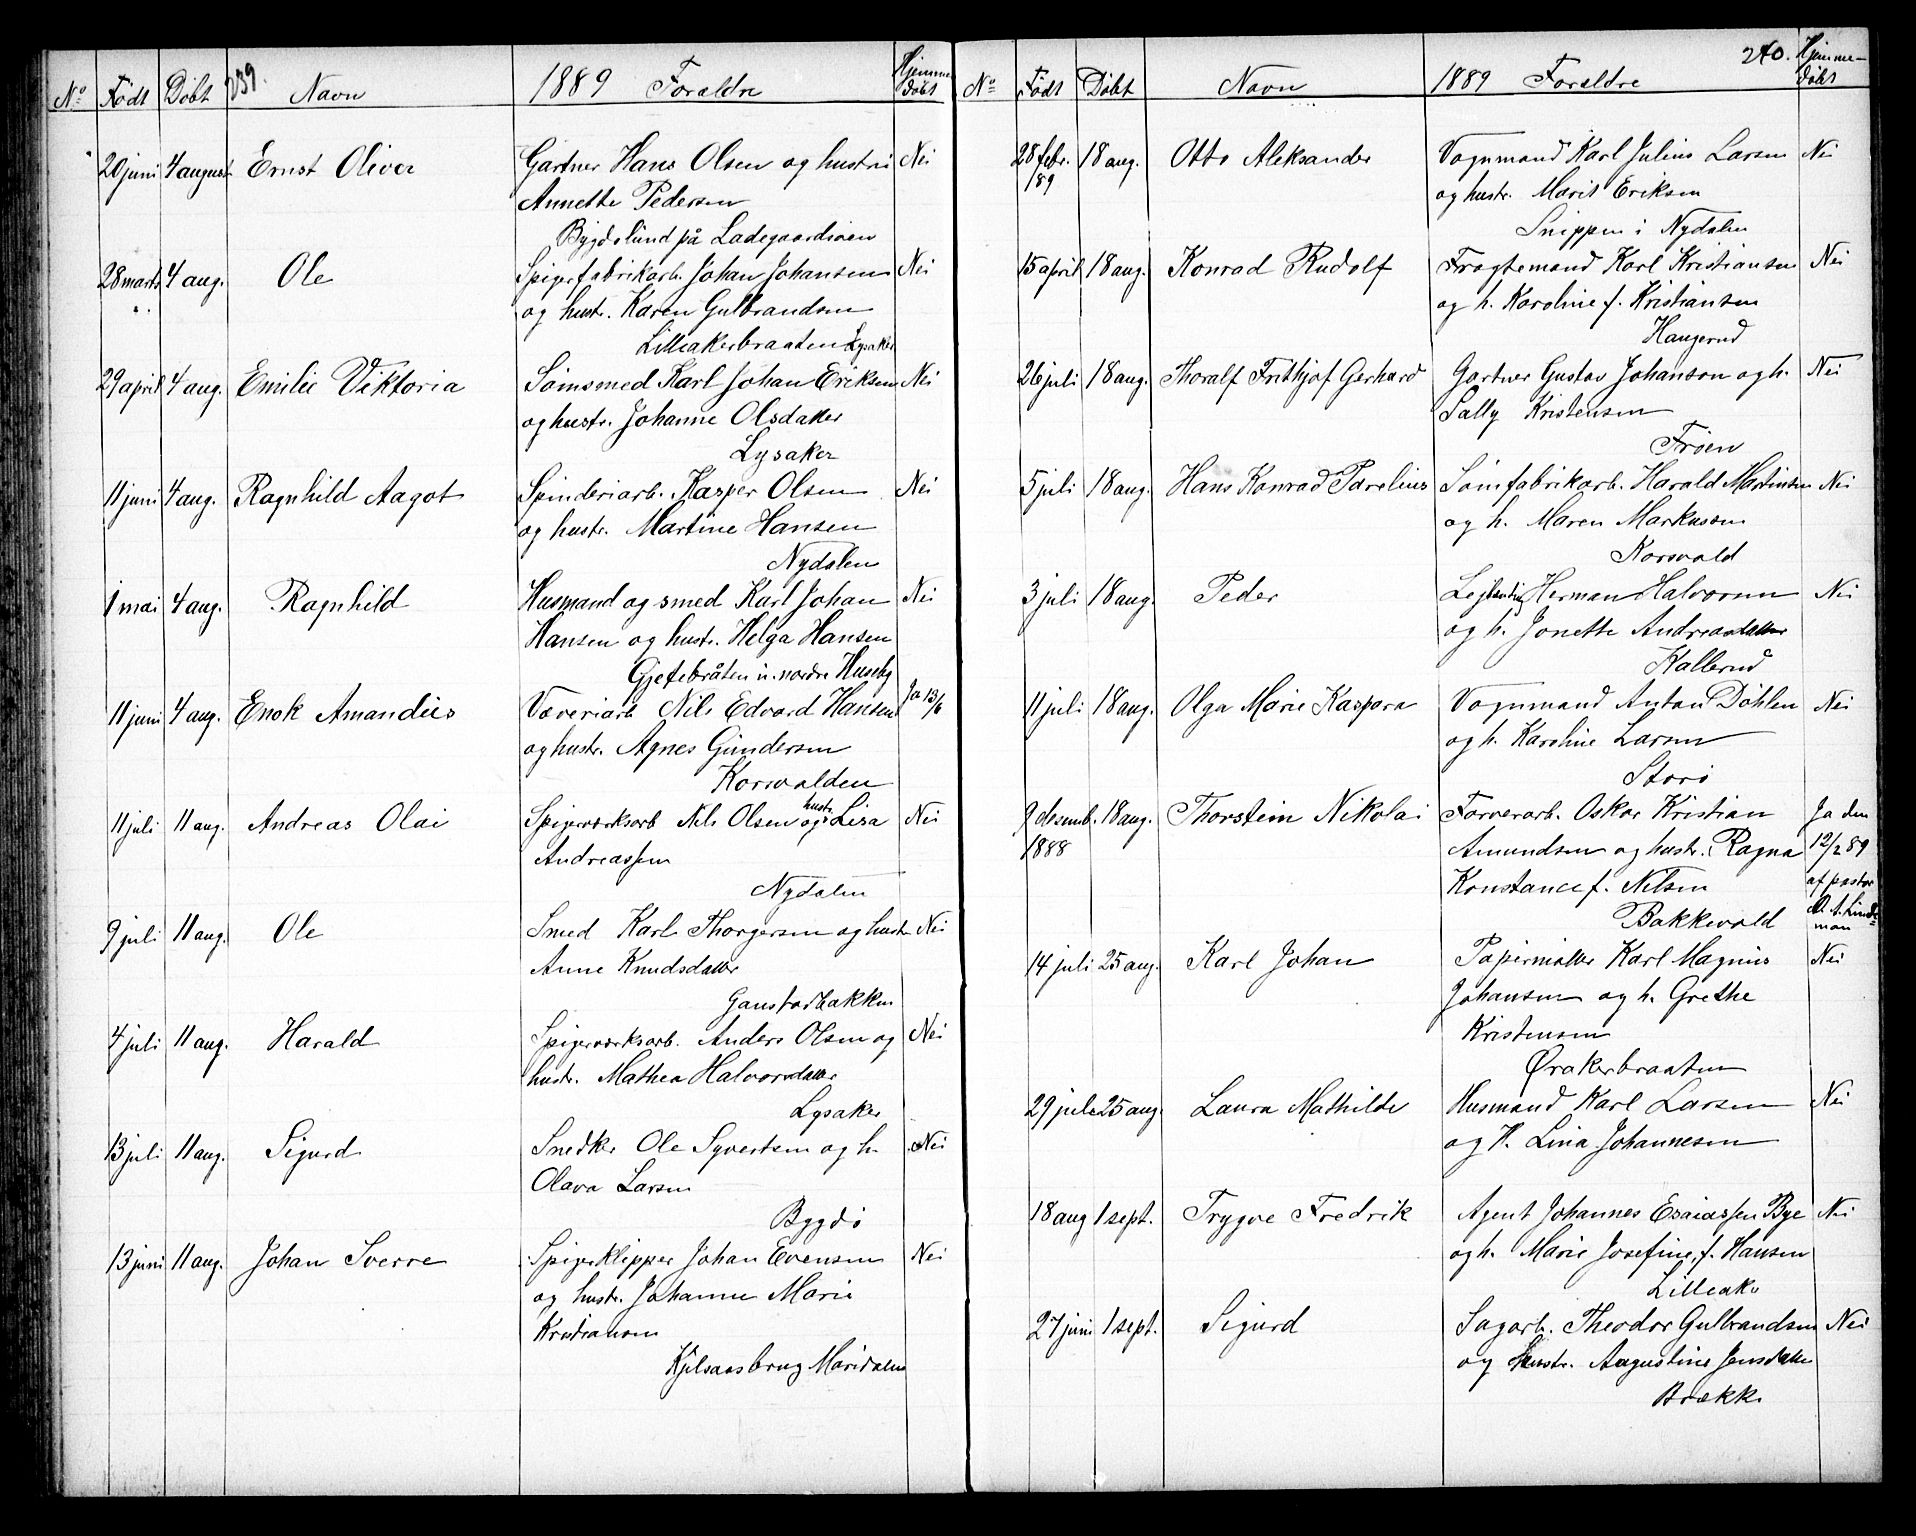 239.
No Født Døbt Navn 1889 Forældre Hjemmedøbt
20 juni 4 august Ernst Oliver Gartner Hans Olsen og hustru Nei
Annette Pedersen
Bygdølund på Ladegaardsøen
28 marts 4 aug. Ole Spigerfabrikarb. Johan Johansen Nei
og hustr. Karen Gulbrandsen
Lilleakerbraaten Lysaker
29 april 4 aug. Emilie Viktoria Sømsmed Karl Johan Eriksen Nei
og hustr. Johanne Olsdatter
Lysaker
11 juni 4 aug. Ragnhild Aagot Spinderiarb. Kasper Olsen Nei
og hustr. Martine Hansen
Nydalen
1 mai 4 aug. Ragnhild Husmand og smed Karl Johan Nei
Hansen og hustr. Helga Hansen
Gjetebråten u. nordre Huseby
11 juni 4 aug. Enok Amandus Væveriarb Nils Edvard Hansen Ja 13/6
og hustr. Agnes Gundersen
Korsvolden
11 juli 11 aug. Andreas Olai Spigerværksarb Nils Olsen og hustr. Lisa Nei
Andreassen
Nydalen
9 juli 11 aug. Ole Smed Karl Thorgersen og hustr Nei
Anne Knudsdatter
Gaustadbakken
4 juli 11 aug. Harald Spigerværksarb. Anders Olsen og Nei
hustr. Mathea Halvorsdatter
Lysaker
13 juli 11 aug. Sigurd Snedker Ole Syvertsen og h. Nei
Olava Larsen
Bygdø
13 juni 11 aug. Johan Sverre Spigerklipper Johan Evensen Nei
og hustr. Johanne Marie
Kristiansen
Kjelsaasbrug Maridalen
240.
No Født Døbt Navn 1889 Forældre Hjemme-døbt
28 febr. 18 aug. Otto Aleksander Vognmand Karl Julius Larsen Nei
189 og hustr. Marit Eriksen
Snippen i Nydalen
15 april 18 aug. Konrad Rudolf Fragtemand Karl Kristiansen Nei
og h. Karoline f. Kristiansen
Haugerud
26 juli 18 aug. Thoralf Frithjof Gerhard Gartner Gustav Johanson og h. Nei
Sally Kristensen
Frøen
5 juli 18 aug. Hans Konrad Parelius Sømfabrikarb. Harald Martinsen Nei
og h. Maren Markussen
Korsvold
3 juli 18 aug. Peder Lejlænding Herman Halvorsen Nei
og h. Jonette Andreasdatter
Kallerud
11 juli 18 aug. Olga Marie Kaspara Vognmand Anton Døhlen Nei
og h. Karoline Larsen
Storo
9 desemb. 18 aug. Thorstein Nikolai Farverarb. Oskar Kristian Ja den
1888 Amundsen og hustr. Ragna 12/2 89
Konstance f. Nilsen af pastor
Bakkevold A. Lindeman
14 juli 25 aug. Karl Johan Papirmøller Karl Magnus Nei
Johansen og h. Grethe
Kristensen
Ørakerbraaten
29 juli 25 aug. Laura Mathilde Husmand Karl Larsen Nei
og H. Lina Johannesen
18 aug 1 sept. Trygve Fredrik Agent Johannes Esaiassen Bye Nei
og h. Marie Josefine f. Hansen
Lilleaker
27 juni 1 sept. Sigurd Sagarb. Theodor Gulbrandsen Nei
og hustr. Augustine Jensdatter
Brække